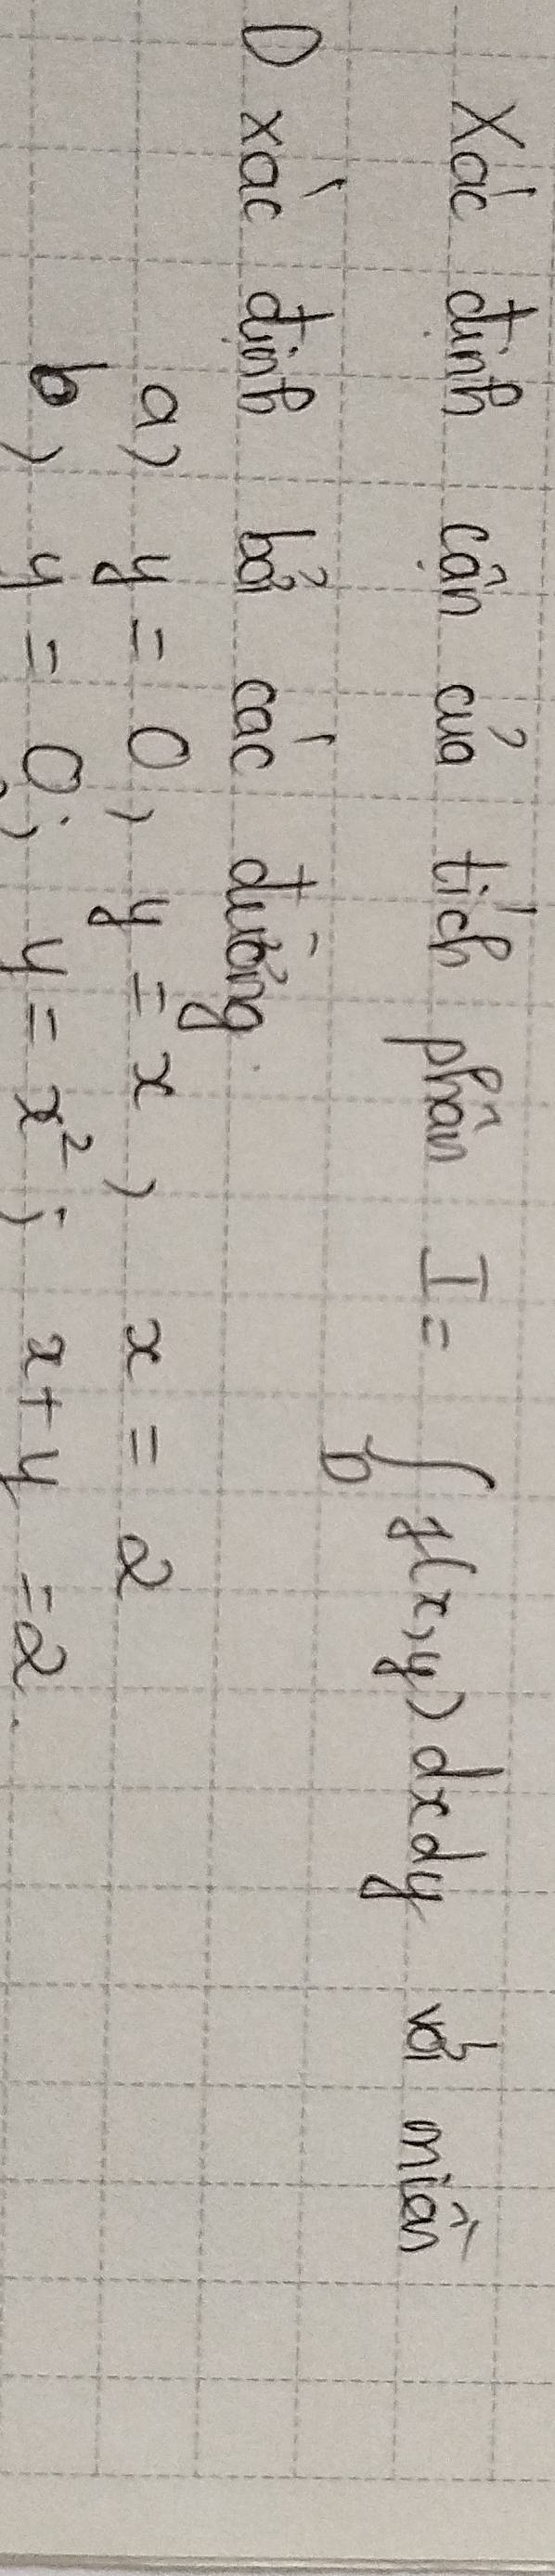 Xác định cận của tích phân I = ∫_D f(x,y) dxdy với miền
D xác định bởi các đường.
a) y = 0, y = x, x = 2
b) y = 0; y = x²; x + y = 2.